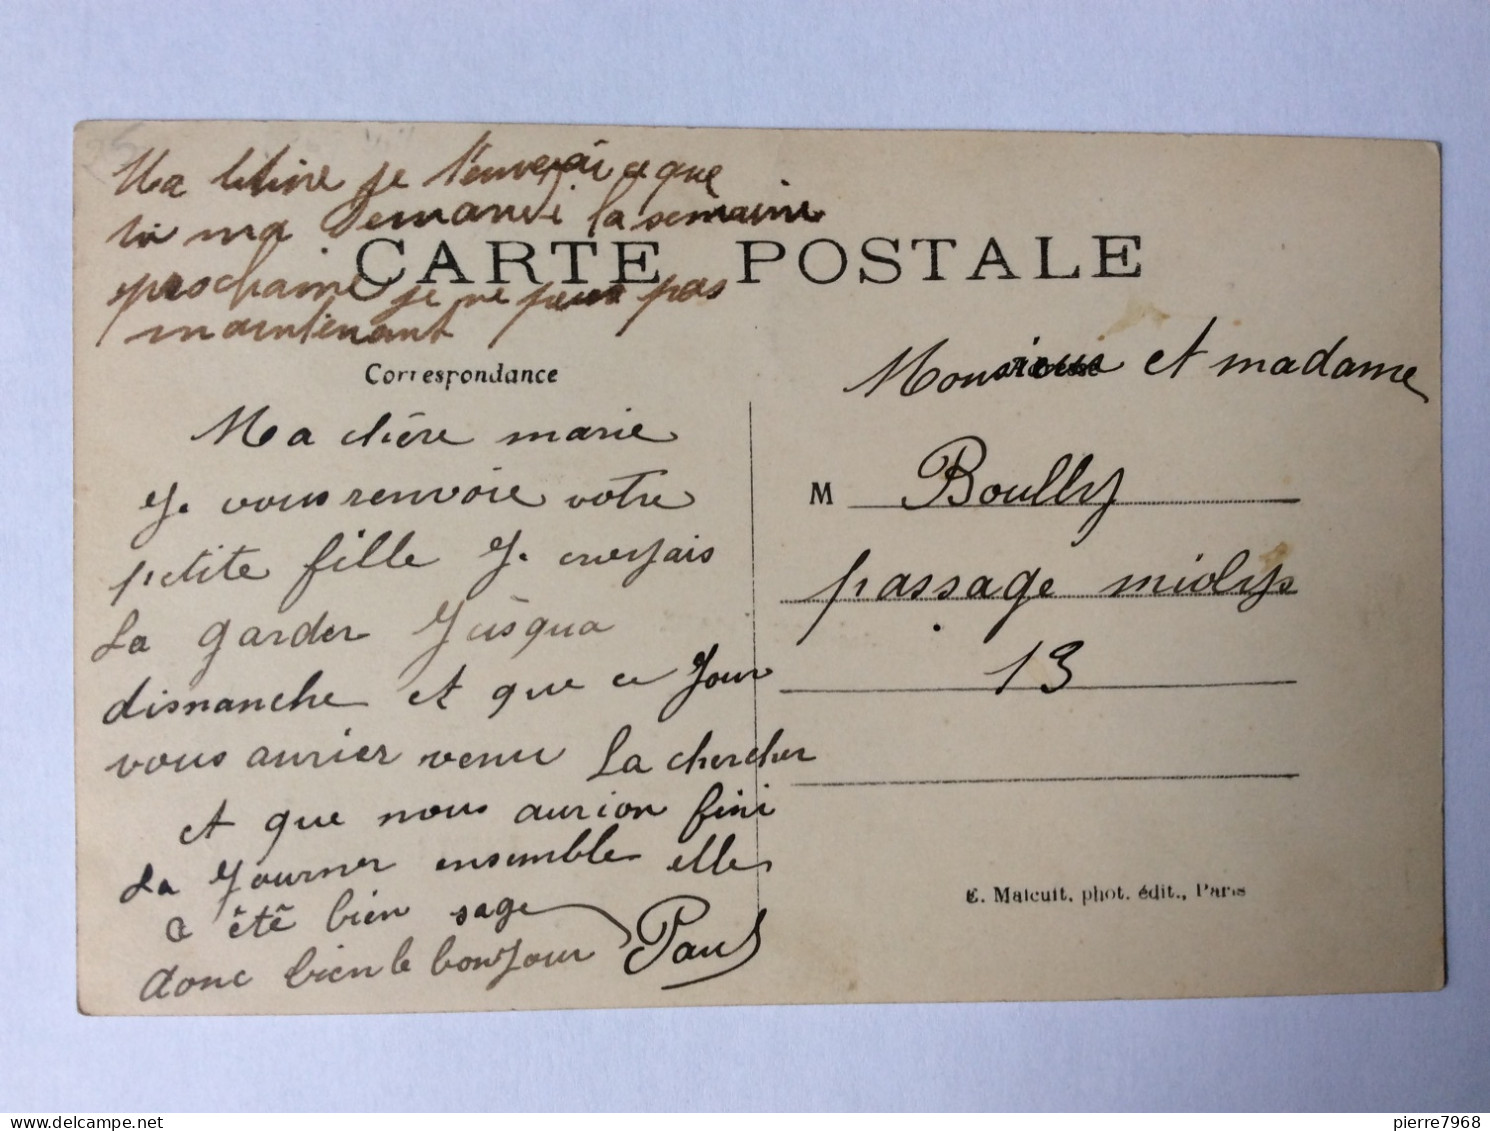 je t'enverai ce que
tu ma demandé la semaine
prochaine je ne peux pas
maintenant
CARTE POSTALE
Correspondance
Ma chère marie
Je vous renvoie votre
petite fille Je croyais
La garder Jusqua
dimanche et que ce Jour
vous aurier venu La chercher
et que nous aurion fini
La Journer ensemble elle
a été bien sage
donc bien le bonjour Paul
Monsieur et madame
M Boully
passage miolys
13
E. Malcuit, phot. édit., Paris
pierre7968